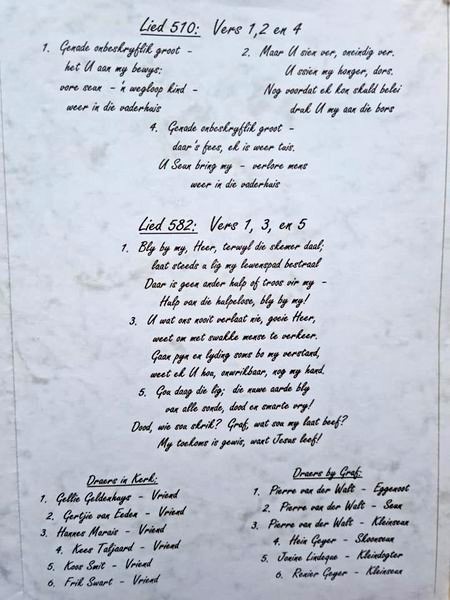 Lied 510: Vers 1, 2 en 4
1. Genade onbeskryflik groot -
het U aan my bewys:
vore seun - 'n wegloop kind -
weer in die vaderhuis
2. Maar U sien ver, oneindig ver.
U ssien my honger, dors.
Nog voordat ek kon skuld belei
druk U my aan die bors
4. Genade onbeskryflik groot -
daar's fees, ek is weer tuis.
U Seun bring my - verlore mens
weer in die vaderhuis
Lied 582: Vers 1, 3, en 5
1. Bly by my, Heer, terwyl die skemer daal;
laat steeds u lig my lewenspad bestraal
Daar is geen ander hulp of troos vir my -
Hulp van die hulpelose, bly by my!
3. U wat ons nooit verlaat nie, goeie Heer,
weet om met swakke mense te verkeer.
Gaan pyn en lyding soms bo my verstand,
weet ek U hou, onwrikbaar, nog my hand.
5. Gou daag die lig; die nuwe aarde bly
van alle sonde, dood en smarte vry!
Dood, wie sou skrik? Graf, wat sou my laat beef?
My toekoms is gewis, want Jesus leef!
Draers in Kerk:
1. Gellie Geldenhuys - Vriend
2. Gertjie van Eeden - Vriend
3. Hannes Marais - Vriend
4. Kees Taljaard - Vriend
5. Koos Smit - Vriend
6. Frik Swart - Vriend
Draers by Graf:
1. Pierre van der Walt - Eggenoot
2. Pierre van der Walt - Seun
3. Pierre van der Walt - Kleinseun
4. Hein Geyer - Skoonseun
5. Jonine Lindeque - Kleindogter
6. Renier Geyer - Kleinseun